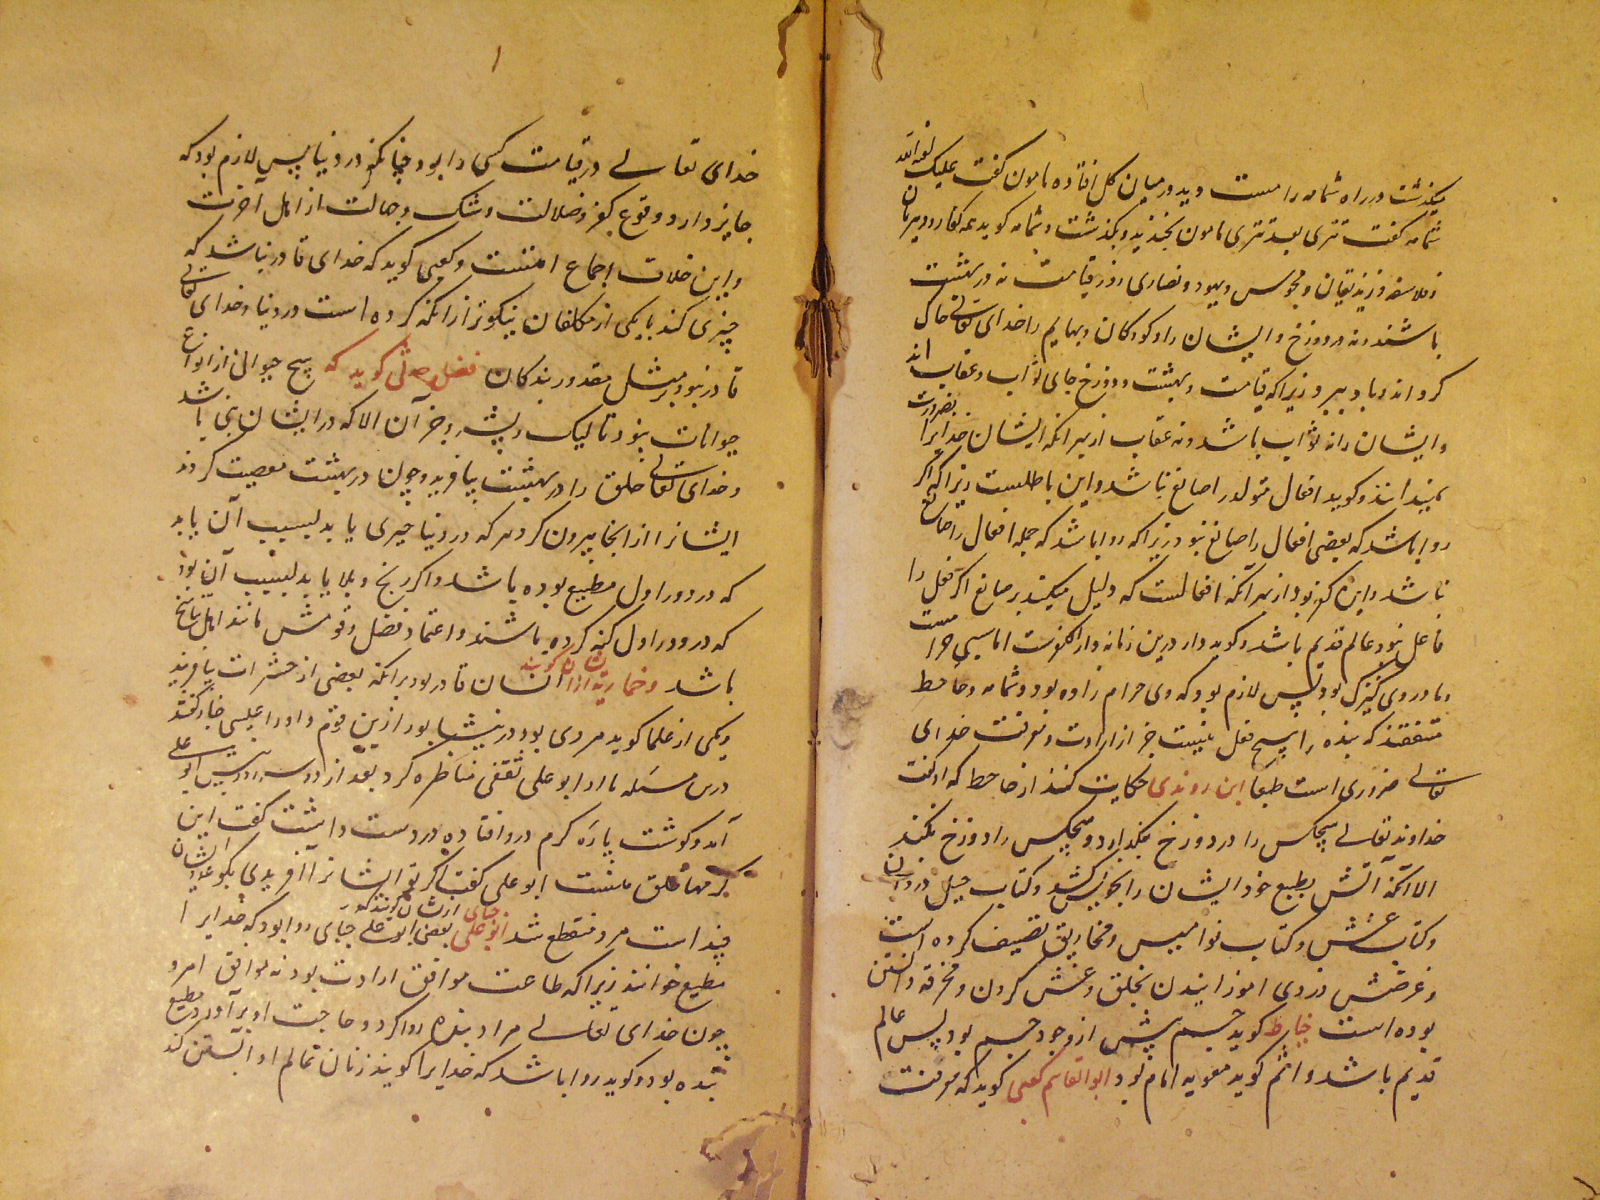 میکذشت در راه ثمامه را مست دید در میان کل افتاده مامون کفت علیک لعنة الله
ثمامه کفت تتری بعد تتری مامون بخندید و بکذشت و ثمامه کوید همه کفار و دهریان
و فلاسفه و زندیقان و مجوس و یهود و نصاری روز قیامت نه در بهشت
باشند و نه در دوزخ و ایشان را و کودکان و بهایم را خدای تعالی خاک
کرداند و باد ببرد زیرا که قیامت و بهشت و دوزخ جای ثواب و عقاب اند
و ایشان را نه ثواب باشد و نه عقاب از بهر انکه ایشان خدایرا بضرورت
بیند انند و کوید افعال متولد را صانع نباشد و این باطلست زیرا که اکر
روا باشد که بعضی افعال را صانع نبود زیرا که روا باشد که جمله افعال را صانع
نباشد و این کفر بود از بهر آنکه افعالست که دلیل میکند بر صانع اکر فعل را
فاعل نبود عالم قدیم باشد و کوید دار درین زمانه دار الکفرست اما سبی حرامست
و مادر وی کنیزک بود پس لازم بود که وی حرام زاده بود و ثمامه و جاحظ
متفقند که بنده را هیچ فعل نیست جز از ارادت و معرفت خدای
تعالی ضروری است طبعا ابن روندی حکایت کند از جاحظ که او کفت
خداوند تعالی هیچکس را در دوزخ نکذارد و هیچکس را دوزخ نکند
الا آنکه آتش بطبع خود ایشان را بخویش کشد و کتاب حیل دزدان
و کتاب غش و کتاب نوامیس و مخاریق تصنیف کرده است
و غرضش دزدی اموزانیدن بخلق و غش کردن و مخرقه دانستن
بوده است خیاط کوید جسم پیش از وجود جسم بود پس عالم
قدیم باشد و اثم کوید معویه امام بود ابو القاسم کعبی کوید که معرفت
خدای تعالی در قیامت کسی را بود چنانکه در دنیا پس لازم بود که
جایز دارد وقوع کفر و ضلالت و شک و جهالت از اهل آخرت
و این خلاف اجماع امتست و کعبی کوید که خدای قادر نباشد که
چیزی کند با یکی از مکلفان نیکوتر از انکه کرده است در دنیا و خدای تعالی
قادر نبود بر مثل مقدور بندکان فضل حدثی کوید که هیچ حیوانی از انواع
حیوانات نبود تا کیک و پشه و جز آن الا که در ایشان نبی باشد
و خدای تعالی خلق را در بهشت بیافرید و چون در بهشت معصیت کردند
ایشانرا از انجا بیرون کرد هر که در دنیا خیری یابد بسبب آن یابد
که در دور اول مطیع بوده باشد و اکر رنج و بلا یابد بسبب آن بود
که در دور اول کنه کرده باشند و اعتماد فضل و قومش مانند اهل تناسخ
باشد و خماریه از ایشان کویند انسان قادر بود بر انکه بعضی از حشرات بیافریند
و یکی از علما کوید مردی بود در نیشابور ازین قوم و او را عبسی خباز کفتند
درین مسئله با او ابو علی ثقفی مناظره کرد بعد از دو سه روز پیش ابو علی
آمد و کوشت پاره کرم درو افتاده در دست داشت کفت این
کرمها خلق منست ابو علی کفت اکر تو ایشانرا آفریدی بکو عدد ایشان
چند است مرد منقطع شد ابو علی جبای روا بود که خدایرا
مطیع خوانند زیرا که طاعت موافق ارادت بود نه موافق امر و
چون خدای تعالی مراد بنده روا کرد و حاجت او بر آورد مطیع
بنده بود و کوید روا باشد که خدایرا کویند زنان عالم او آبستن کند